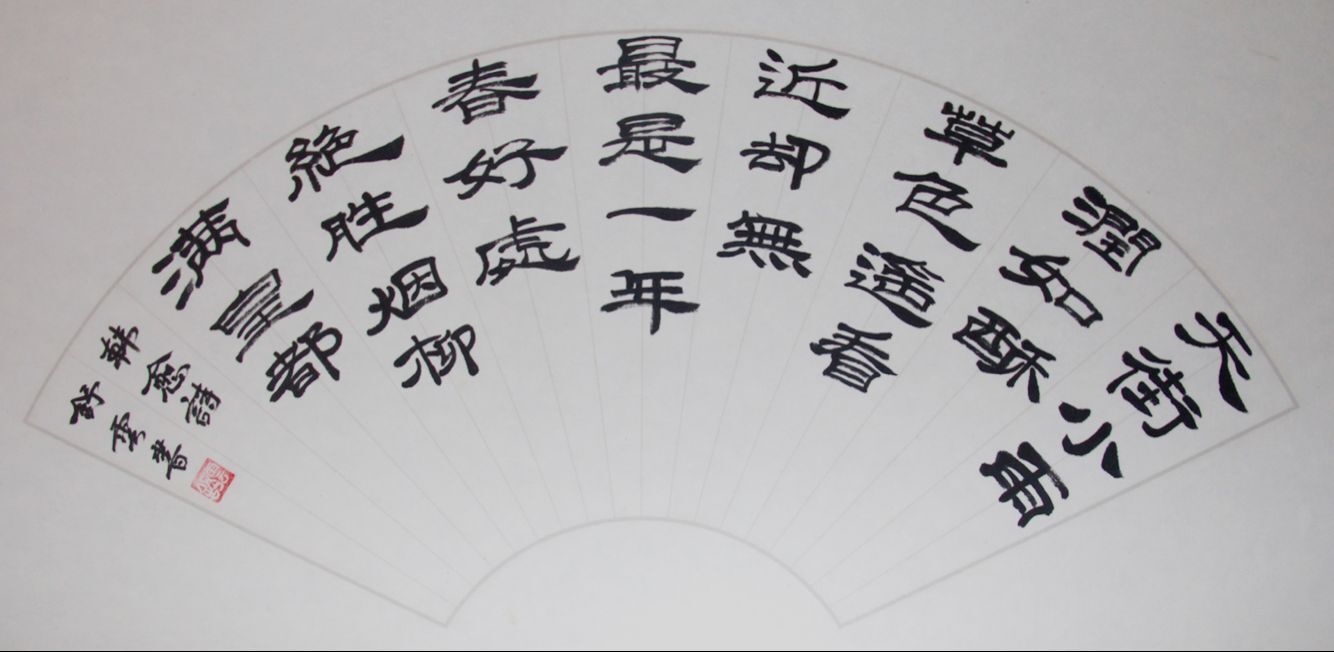 天街小雨
潤如酥
草色遥看
近却無
最是一年
春好處
絶胜烟柳
满皇都
韩愈詩
舒雲書